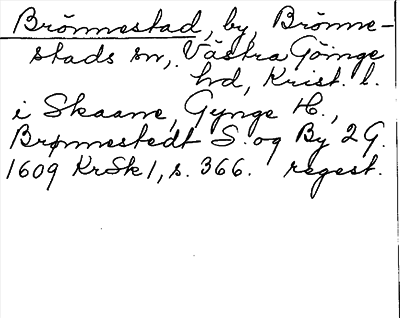 Brönnestad, by, Brönne-
stads sn, Västra Göinge
hd, Krist. l.
i Skaane, Gynge H.,
Brønnestedt S. og By 2 G.
1609 KrSk 1, s. 366. regest.